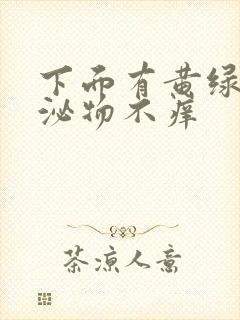 下而有黄绿
泌物不痒
茶凉人意